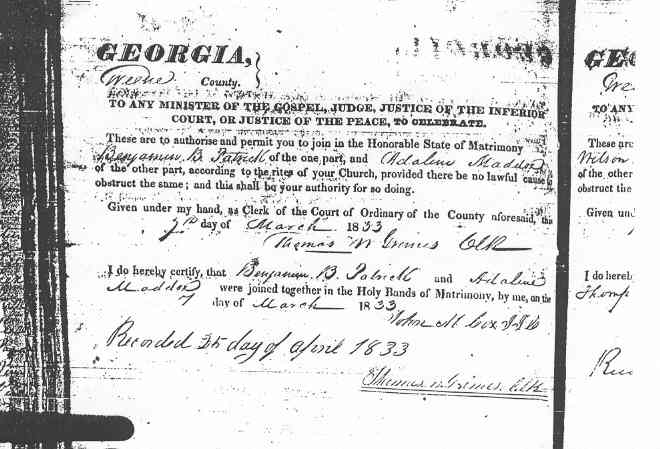 GEORGIA,
Greene County.
TO ANY MINISTER OF THE GOSPEL, JUDGE, JUSTICE OF THE INFERIOR
COURT, OR JUSTICE OF THE PEACE, TO CELEBRATE.
These are to authorise and permit you to join in the Honorable State of Matrimony
Benjamin B. Patrick of the one part, and Adaline Maddox
of the other part, according to the rites of your Church, provided there be no lawful cause
obstruct the same; and this shall be your authority for so doing.
Given under my hand, as Clerk of the Court of Ordinary of the County aforesaid, this
7th day of March 1833
Thomas W Grimes Clk
I do hereby certify, that Benjamin B. Patrick and Adaline
Maddox were joined together in the Holy Bands of Matrimony, by me, on the
7 day of March 1833
John M Cox J.I.C
Recorded 25 day of April 1833
Thomas W Grimes, Clk
GEO
Gre
TO ANY
These are
Wilson
of the other
obstruct the
Given und
I do hereb
Thomp
Rec